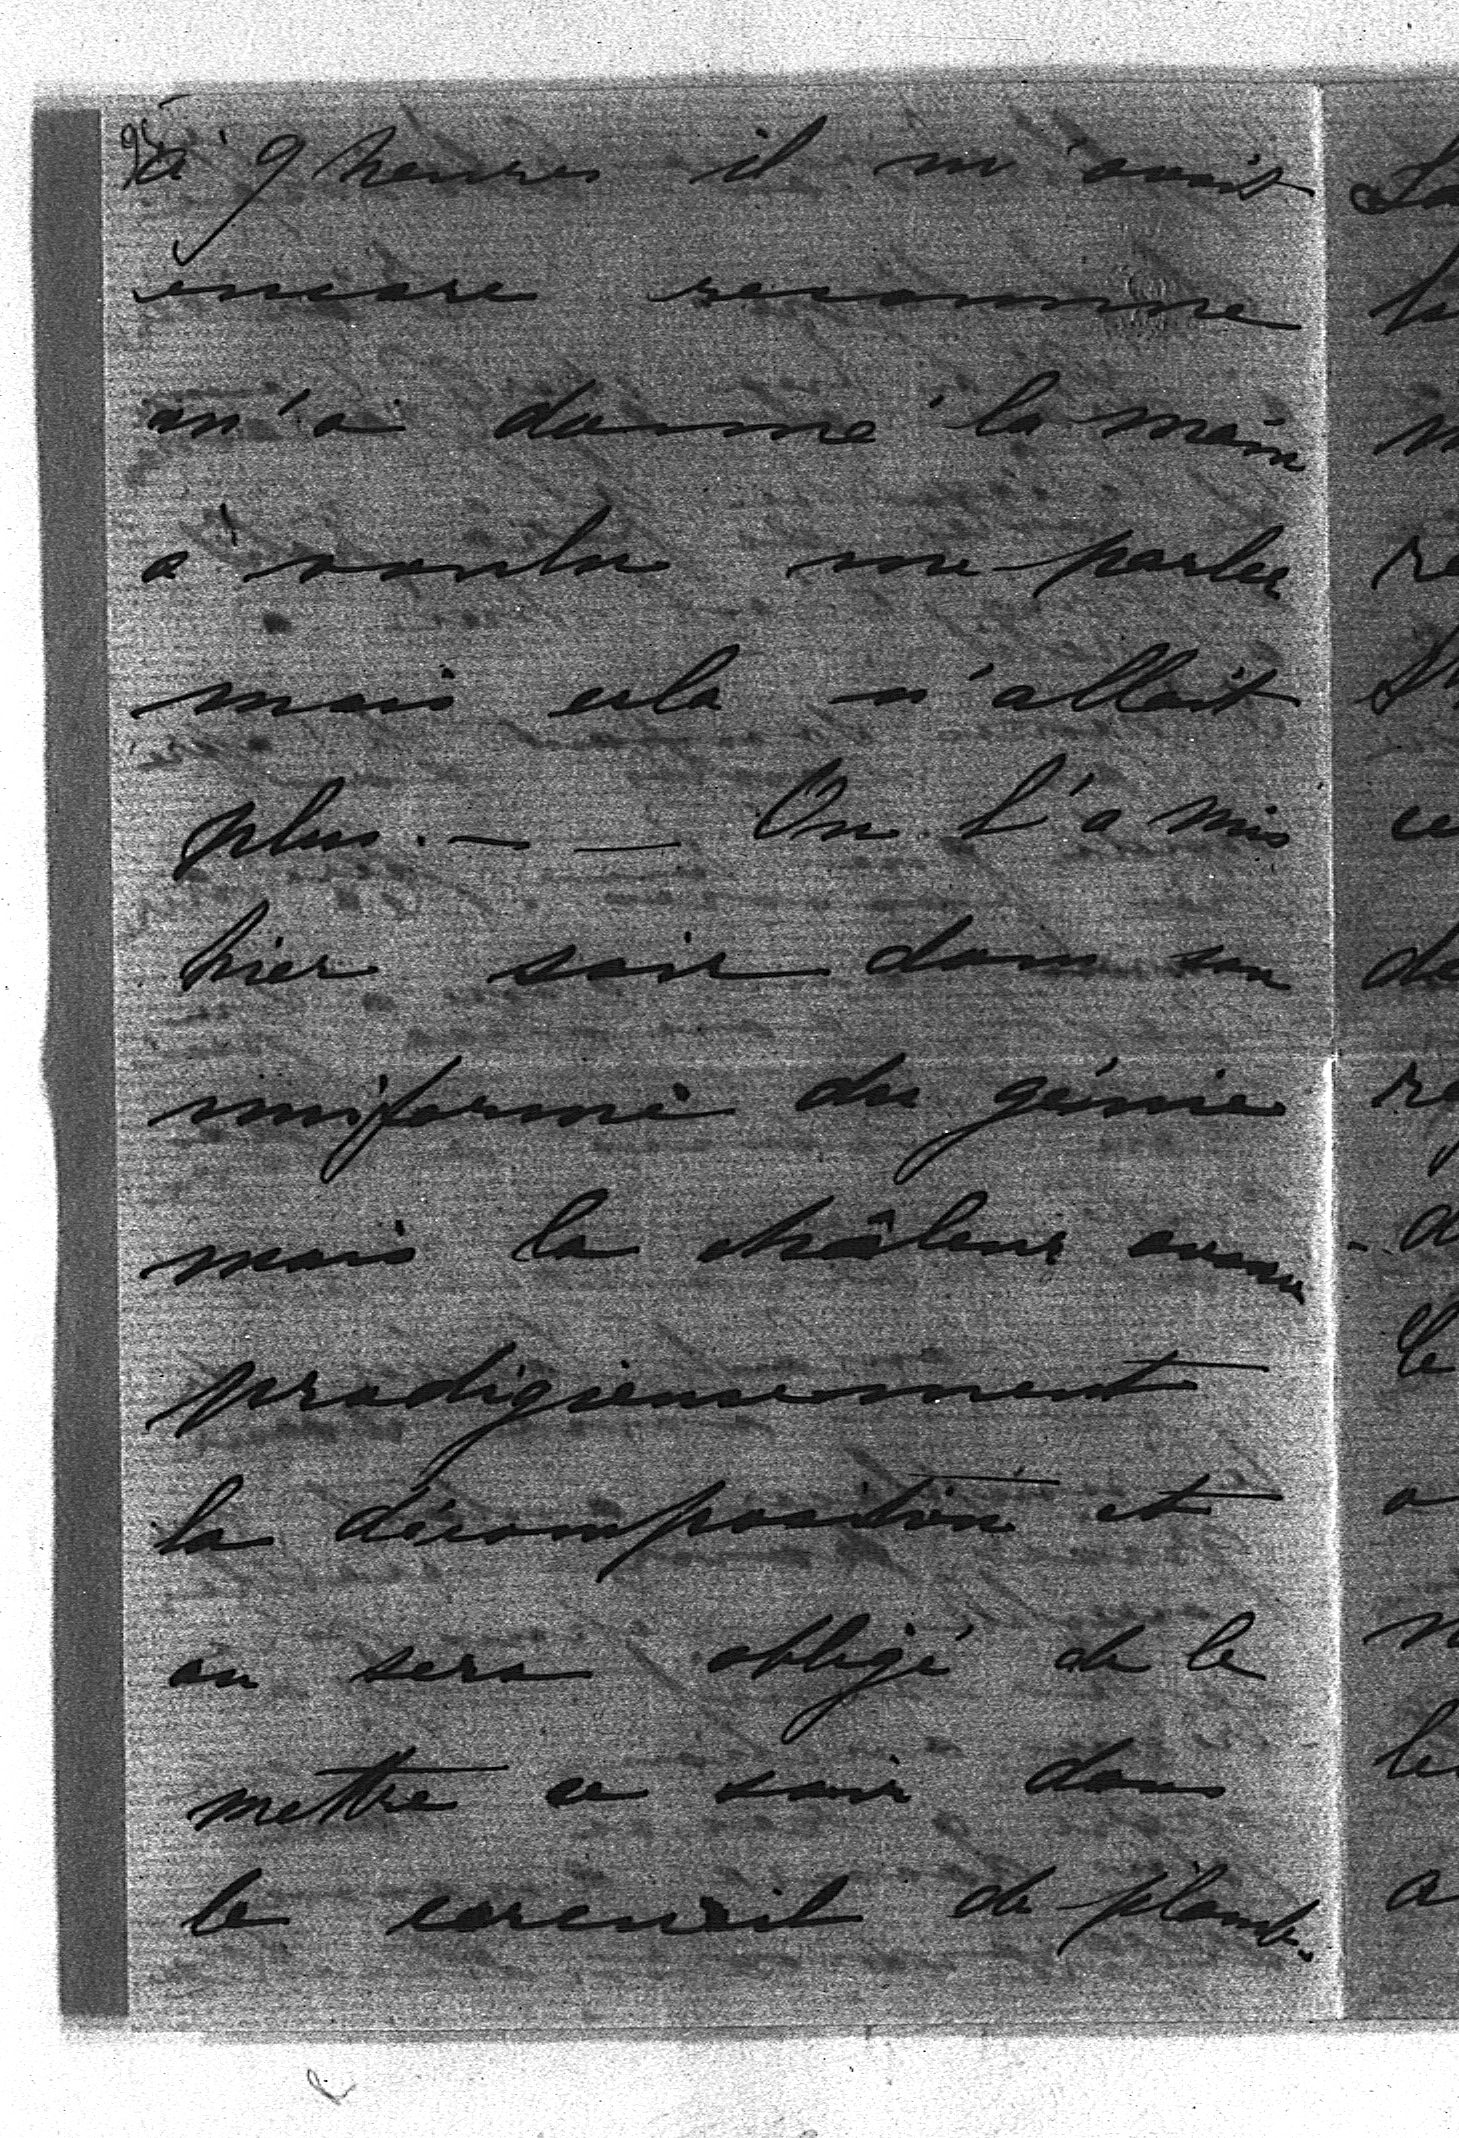 95
à 9 heures il m'avait
encore reconnu
m'a donné la main
a voulu me parler
mais cela n'allait
plus. — — On l'a mis
hier soir dans son
uniforme du génie
mais la châleur avance
prodigieusement
la décomposition et
on sera obligé de le
mettre ce soir dans
le cercueil de plomb.